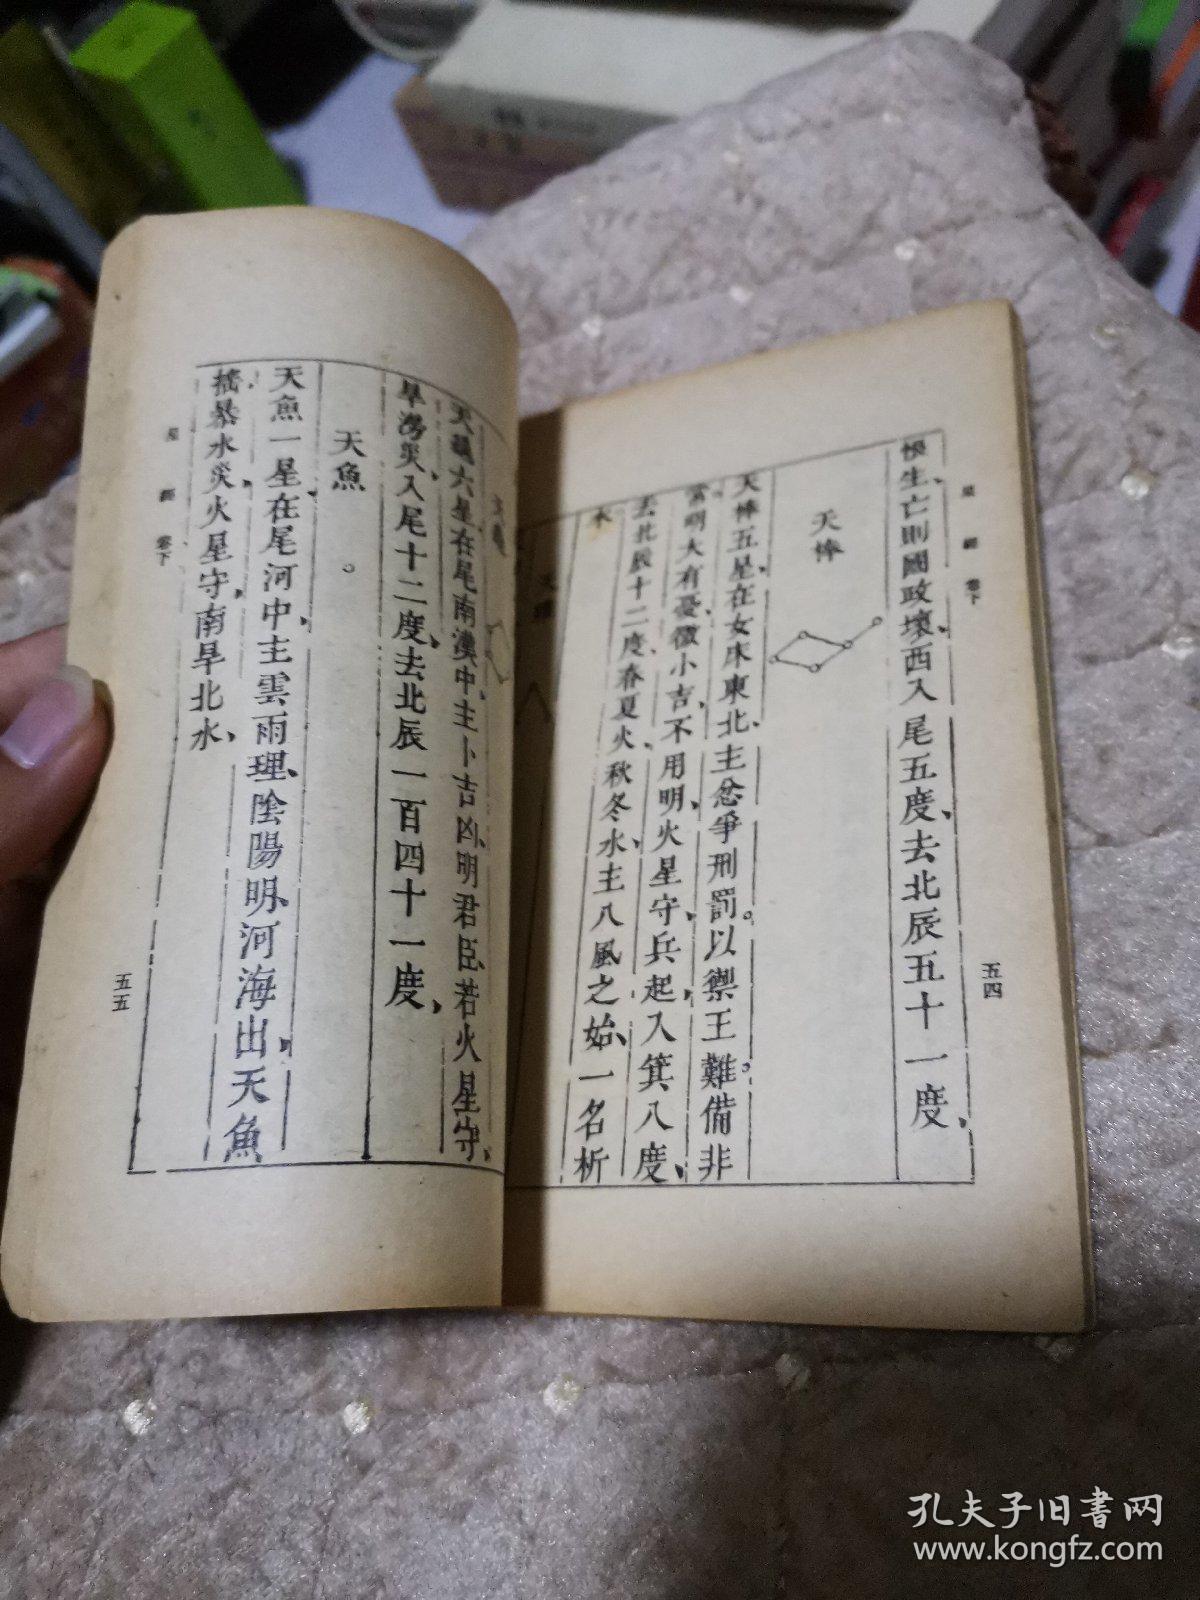 星經 卷下
五四
恨生、亡則國政壞、西入尾五度、去北辰五十一度、
天棒
天棒五星、在女床東北、主忿爭刑罰。以禦王難。備非
當明大有憂、微小吉、不用明、火星守、兵起、入箕八度、
去北辰十二度、春夏火、秋冬水、主八風之始、一名析
木
天
天龜六星、在尾南漢中、主卜吉凶、明君臣、若火星守、
旱澇災、入尾十二度、去北辰一百四十一度、
天魚
天魚一星、在尾河中、主雲雨理、陰陽明、河海出、天魚
搖暴水災、火星守、南旱北水、
星經 卷下
五五
孔夫子旧書网
www.kongfz.com